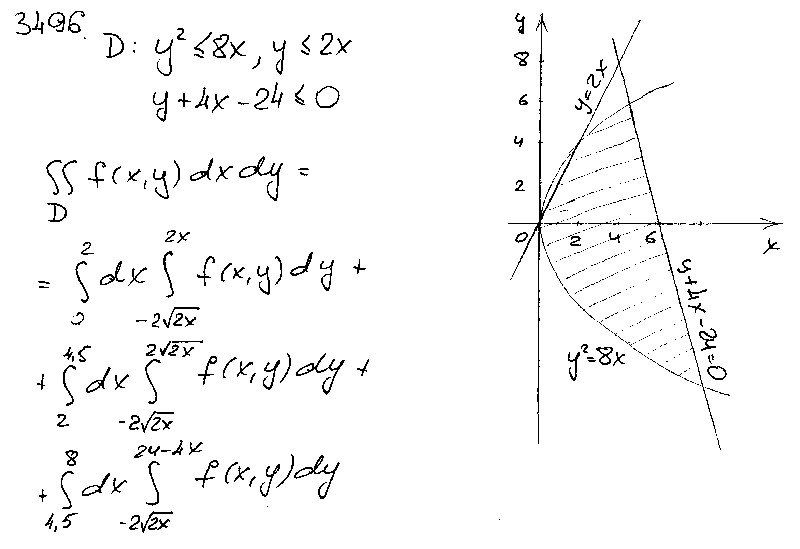 3496.
D: y² ≤ 8x, y ≤ 2x
y + 4x − 24 ≤ 0
∬ f(x,y) dx dy =
D
= ∫₀² dx ∫_{-2√2x}^{2x} f(x,y) dy +
+ ∫₂^{4,5} dx ∫_{-2√2x}^{2√2x} f(x,y) dy +
+ ∫_{4,5}^{8} dx ∫_{-2√2x}^{24-4x} f(x,y) dy
y
8
6
4
2
0 2 4 6
x
y=2x
y+4x−24=0
y²=8x